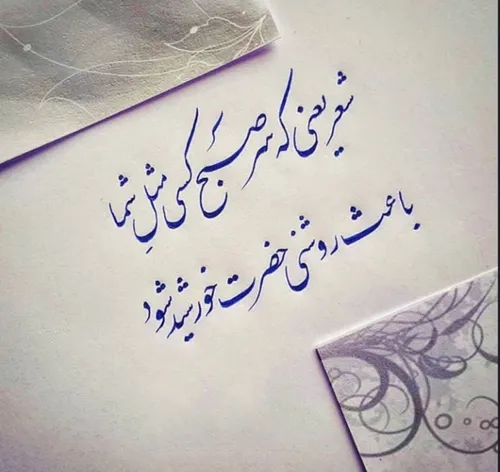 شعر یعنی که سر صبح کسی مثلِ شما
باعث روشنی حضرت خورشید شود